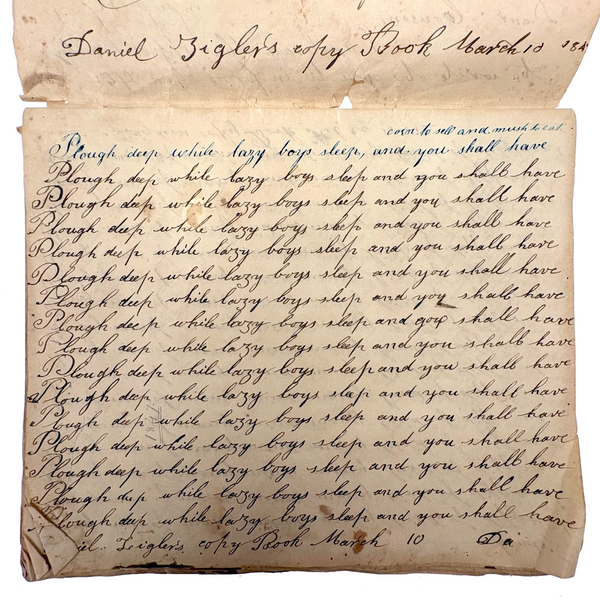 Daniel Zigler's copy Book March 10 184
corn to sell and mush to eat.
Plough deep while lazy boys sleep, and you shall have
Plough deep while lazy boys sleep and you shall have
Plough deep while lazy boys sleep and you shall have
Plough deep while lazy boys sleep and you shall have
Plough deep while lazy boys sleep and you shall have
Plough deep while lazy boys sleep and you shall have
Plough deep while lazy boys sleep and you shall have
Plough deep while lazy boys sleep and you shall have
Plough deep while lazy boys sleep and you shall have
Plough deep while lazy boys sleep and you shall have
Plough deep while lazy boys sleep and you shall have
Plough deep while lazy boys sleep and you shall have
Plough deep while lazy boys sleep and you shall have
Plough deep while lazy boys sleep and you shall have
Plough deep while lazy boys sleep and you shall have
Plough deep while lazy boys sleep and you shall have
iel Zigler's copy Book March 10 Da